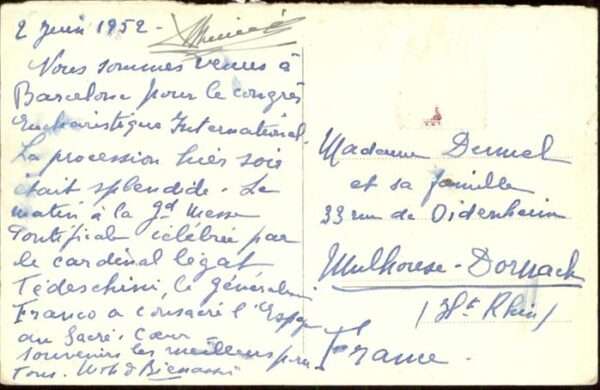 2 Juin 1952 -
Nous sommes venus à
Barcelone pour le congrès
Eucharistique International.
La procession hier soir
était splendide. Le
matin à la gd Messe
Pontificale célébrée par
le cardinal légat
Tedeschini, le général
Franco a consacré l'Espagne
au Sacré-Cœur -
souvenirs les meilleurs pour
Tous.
Madame Dumel
et sa famille
33 rue de Didenheim
Mulhouse-Dornach
(Ht Rhin)
France.